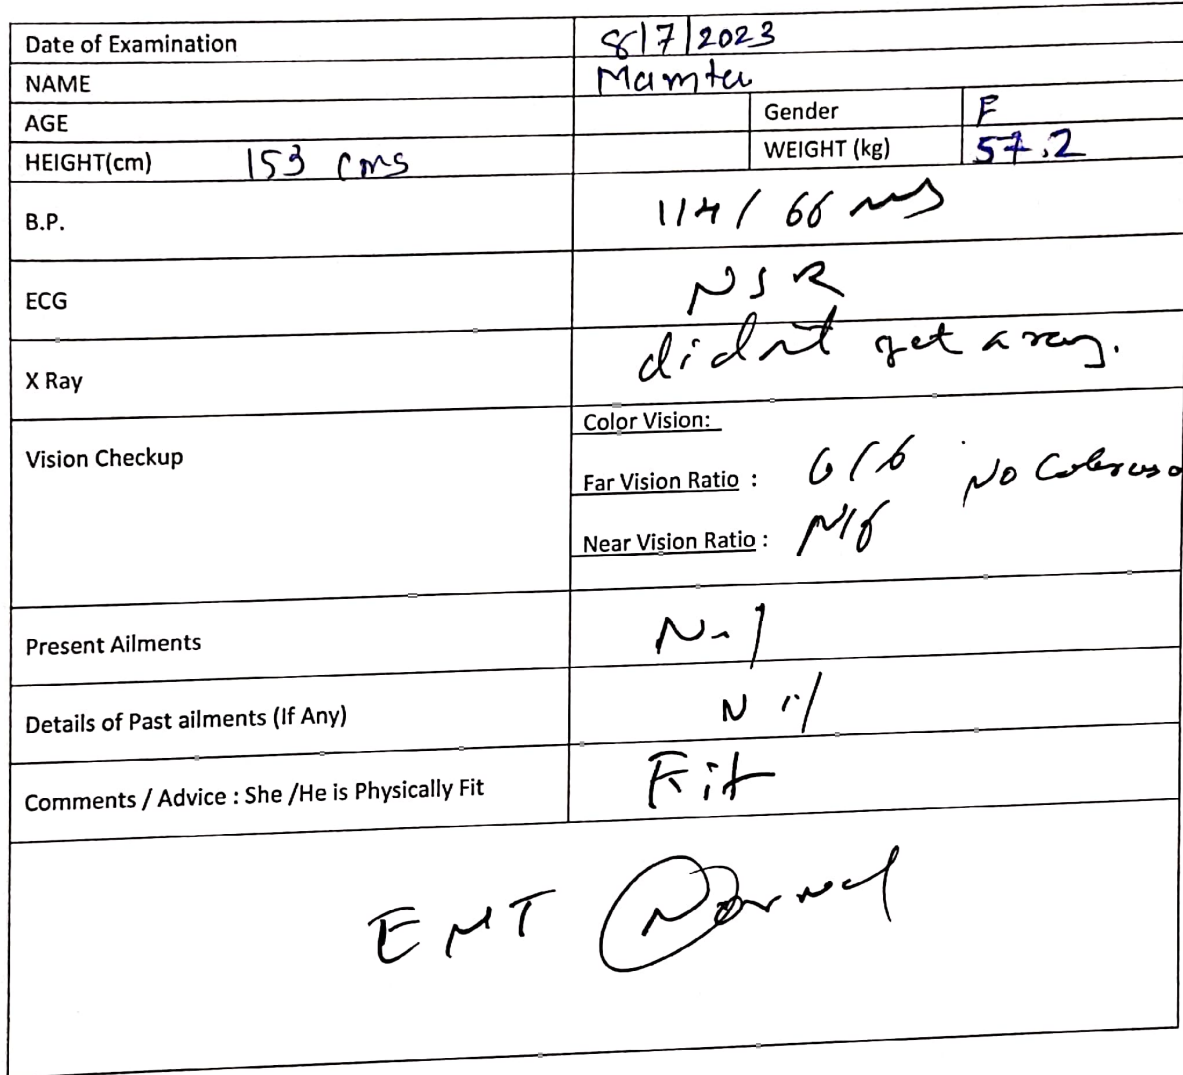 Date of Examination 8/7/2023
NAME Mamta
AGE Gender F
HEIGHT(cm) 153 cms WEIGHT (kg) 57.2
B.P. 114/66
ECG NSR
X Ray didnt get
Color Vision:
Vision Checkup
Far Vision Ratio : 6/6 No
Near Vision Ratio : N/6
Present Ailments Nil
Details of Past ailments (If Any) Nil
Comments / Advice : She /He is Physically Fit Fit
ENT Normal